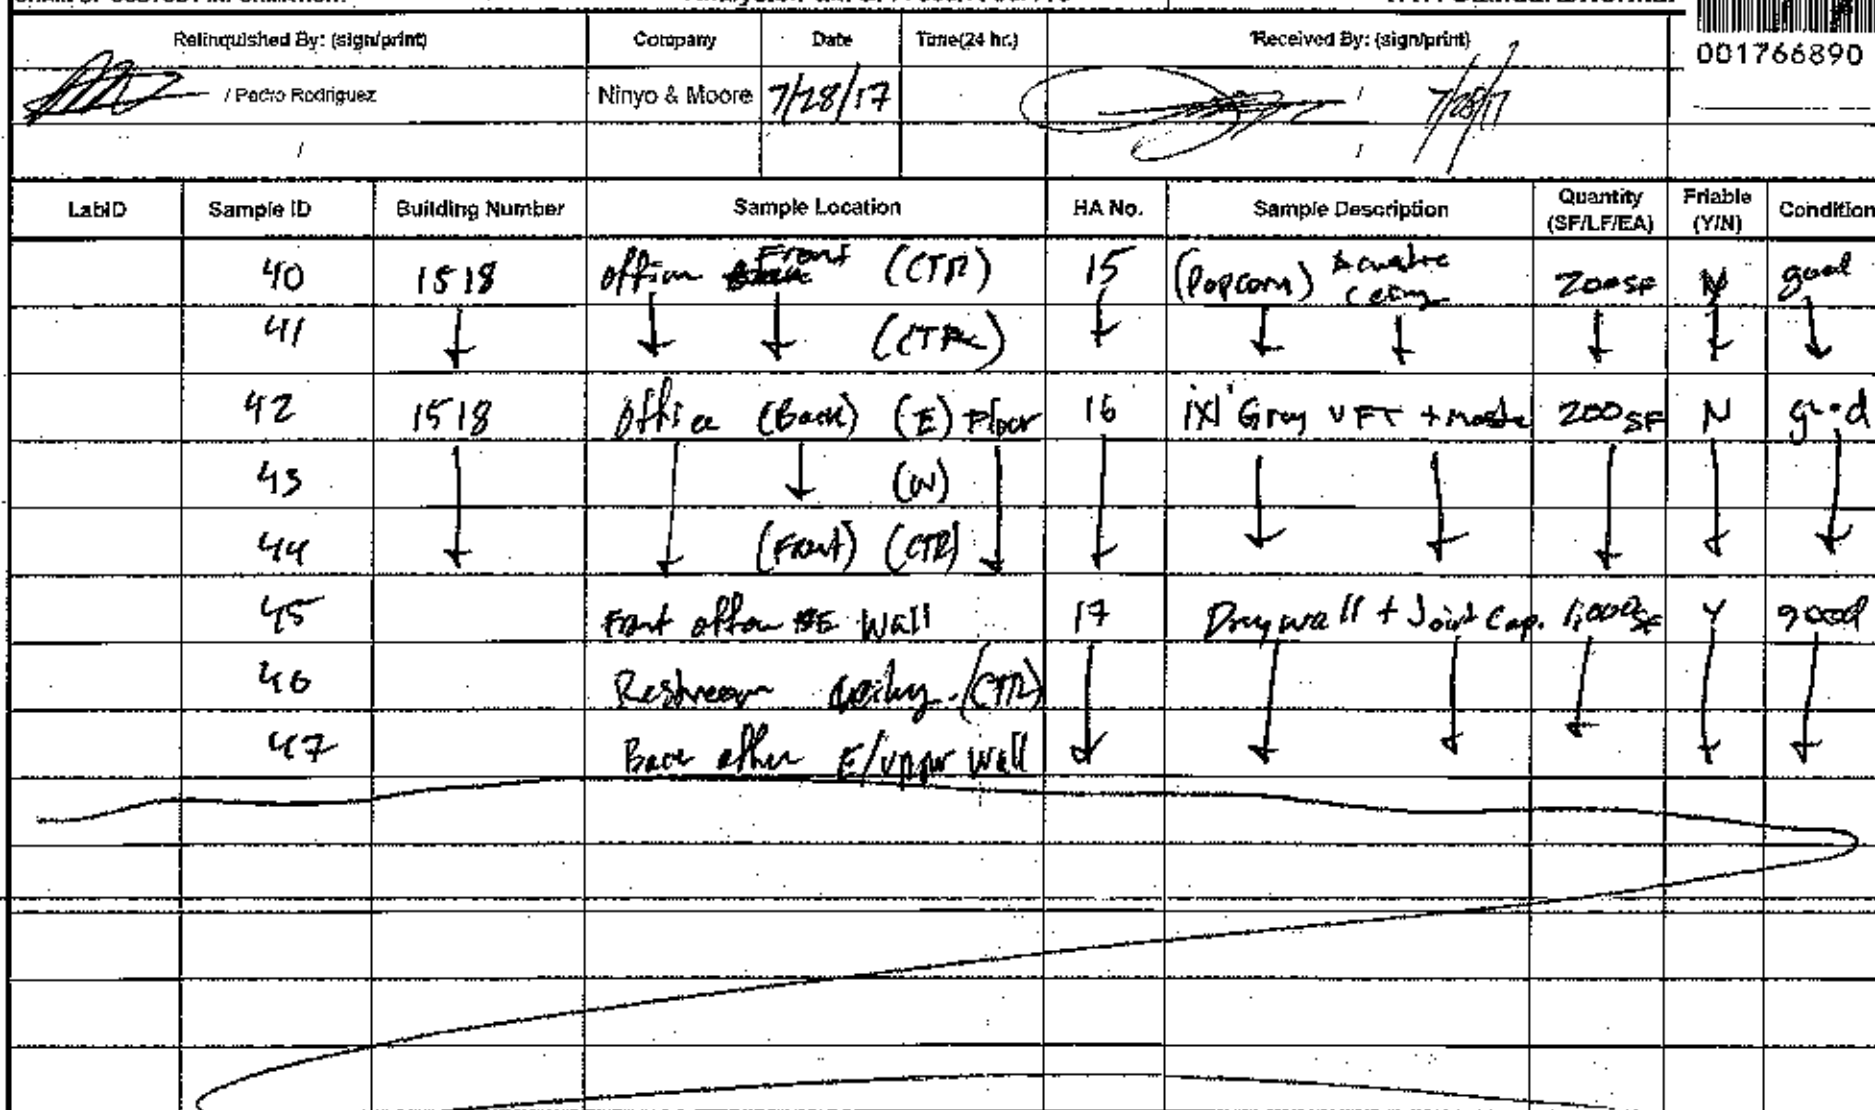 001766890
Relinquished By: (sign/print) Company Date Time(24 hr.) Received By: (sign/print)
/ Pedro Rodriguez Ninyo & Moore 7/28/17 / 7/28/17
/ /
LabID Sample ID Building Number Sample Location HA No. Sample Description Quantity (SF/LF/EA) Friable (Y/N) Condition
40 1518 Front (CTR) 15 (Popcorn) 200 SF N good
41 (CTR)
42 1518 Office (Back) (E) Floor 16 1'x1' Gray VFT + 200 SF N good
43 (W)
44 (Front) (CTR)
45 Wall 17 Drywall + Joint 1,000 SF Y good
46 Restroom (CTR)
47 E/upper Wall